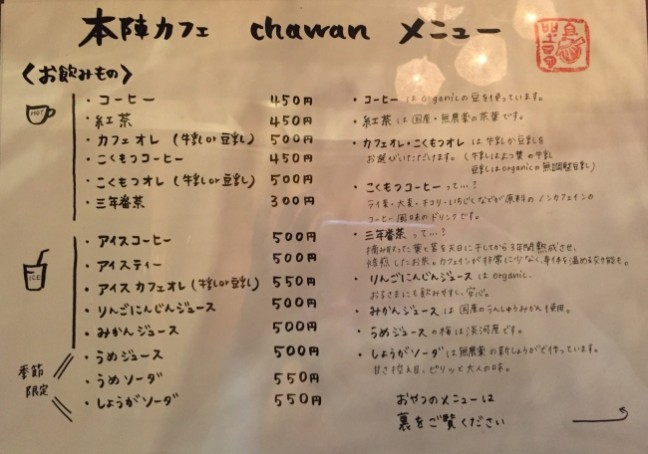 本陣カフェ chawan メニュー
〈お飲みもの〉
HOT
・コーヒー 450円
・紅茶 450円
・カフェオレ (牛乳or豆乳) 500円
・こくもつコーヒー 450円
・こくもつオレ (牛乳or豆乳) 500円
・三年番茶 300円
ICE
・アイスコーヒー 500円
・アイスティー 500円
・アイスカフェオレ (牛乳or豆乳) 550円
・りんごにんじんジュース 500円
・みかんジュース 500円
季節限定
・うめジュース 500円
・うめソーダ 550円
・しょうがソーダ 550円
・コーヒーはorganicの豆を使っています。
・紅茶は国産・無農薬の茶葉です。
・カフェオレ・こくもつオレは牛乳か豆乳を
お選びいただけます。(牛乳はよつ葉の牛乳
豆乳はorganicの無調整豆乳)
・こくもつコーヒーって…?
ライ麦・大麦・チコリ・いちじくなどが原料のノンカフェインの
コーヒー風味のドリンクです。
・三年番茶って…?
摘み取った葉と茎を天日に干してから3年間熟成させ、
焙煎したお茶。カフェインが非常に少なく、身体を温める効能も。
・りんごにんじんジュースはorganic.
お子さまにも飲みやすく、安心。
・みかんジュースは国産のうんしゅうみかん使用。
・うめジュースの梅は湯河原産です。
・しょうがソーダは無農薬の新しょうがで作っています。
甘さ控え目、ピリッと大人の味。
おやつのメニューは
裏をご覧ください